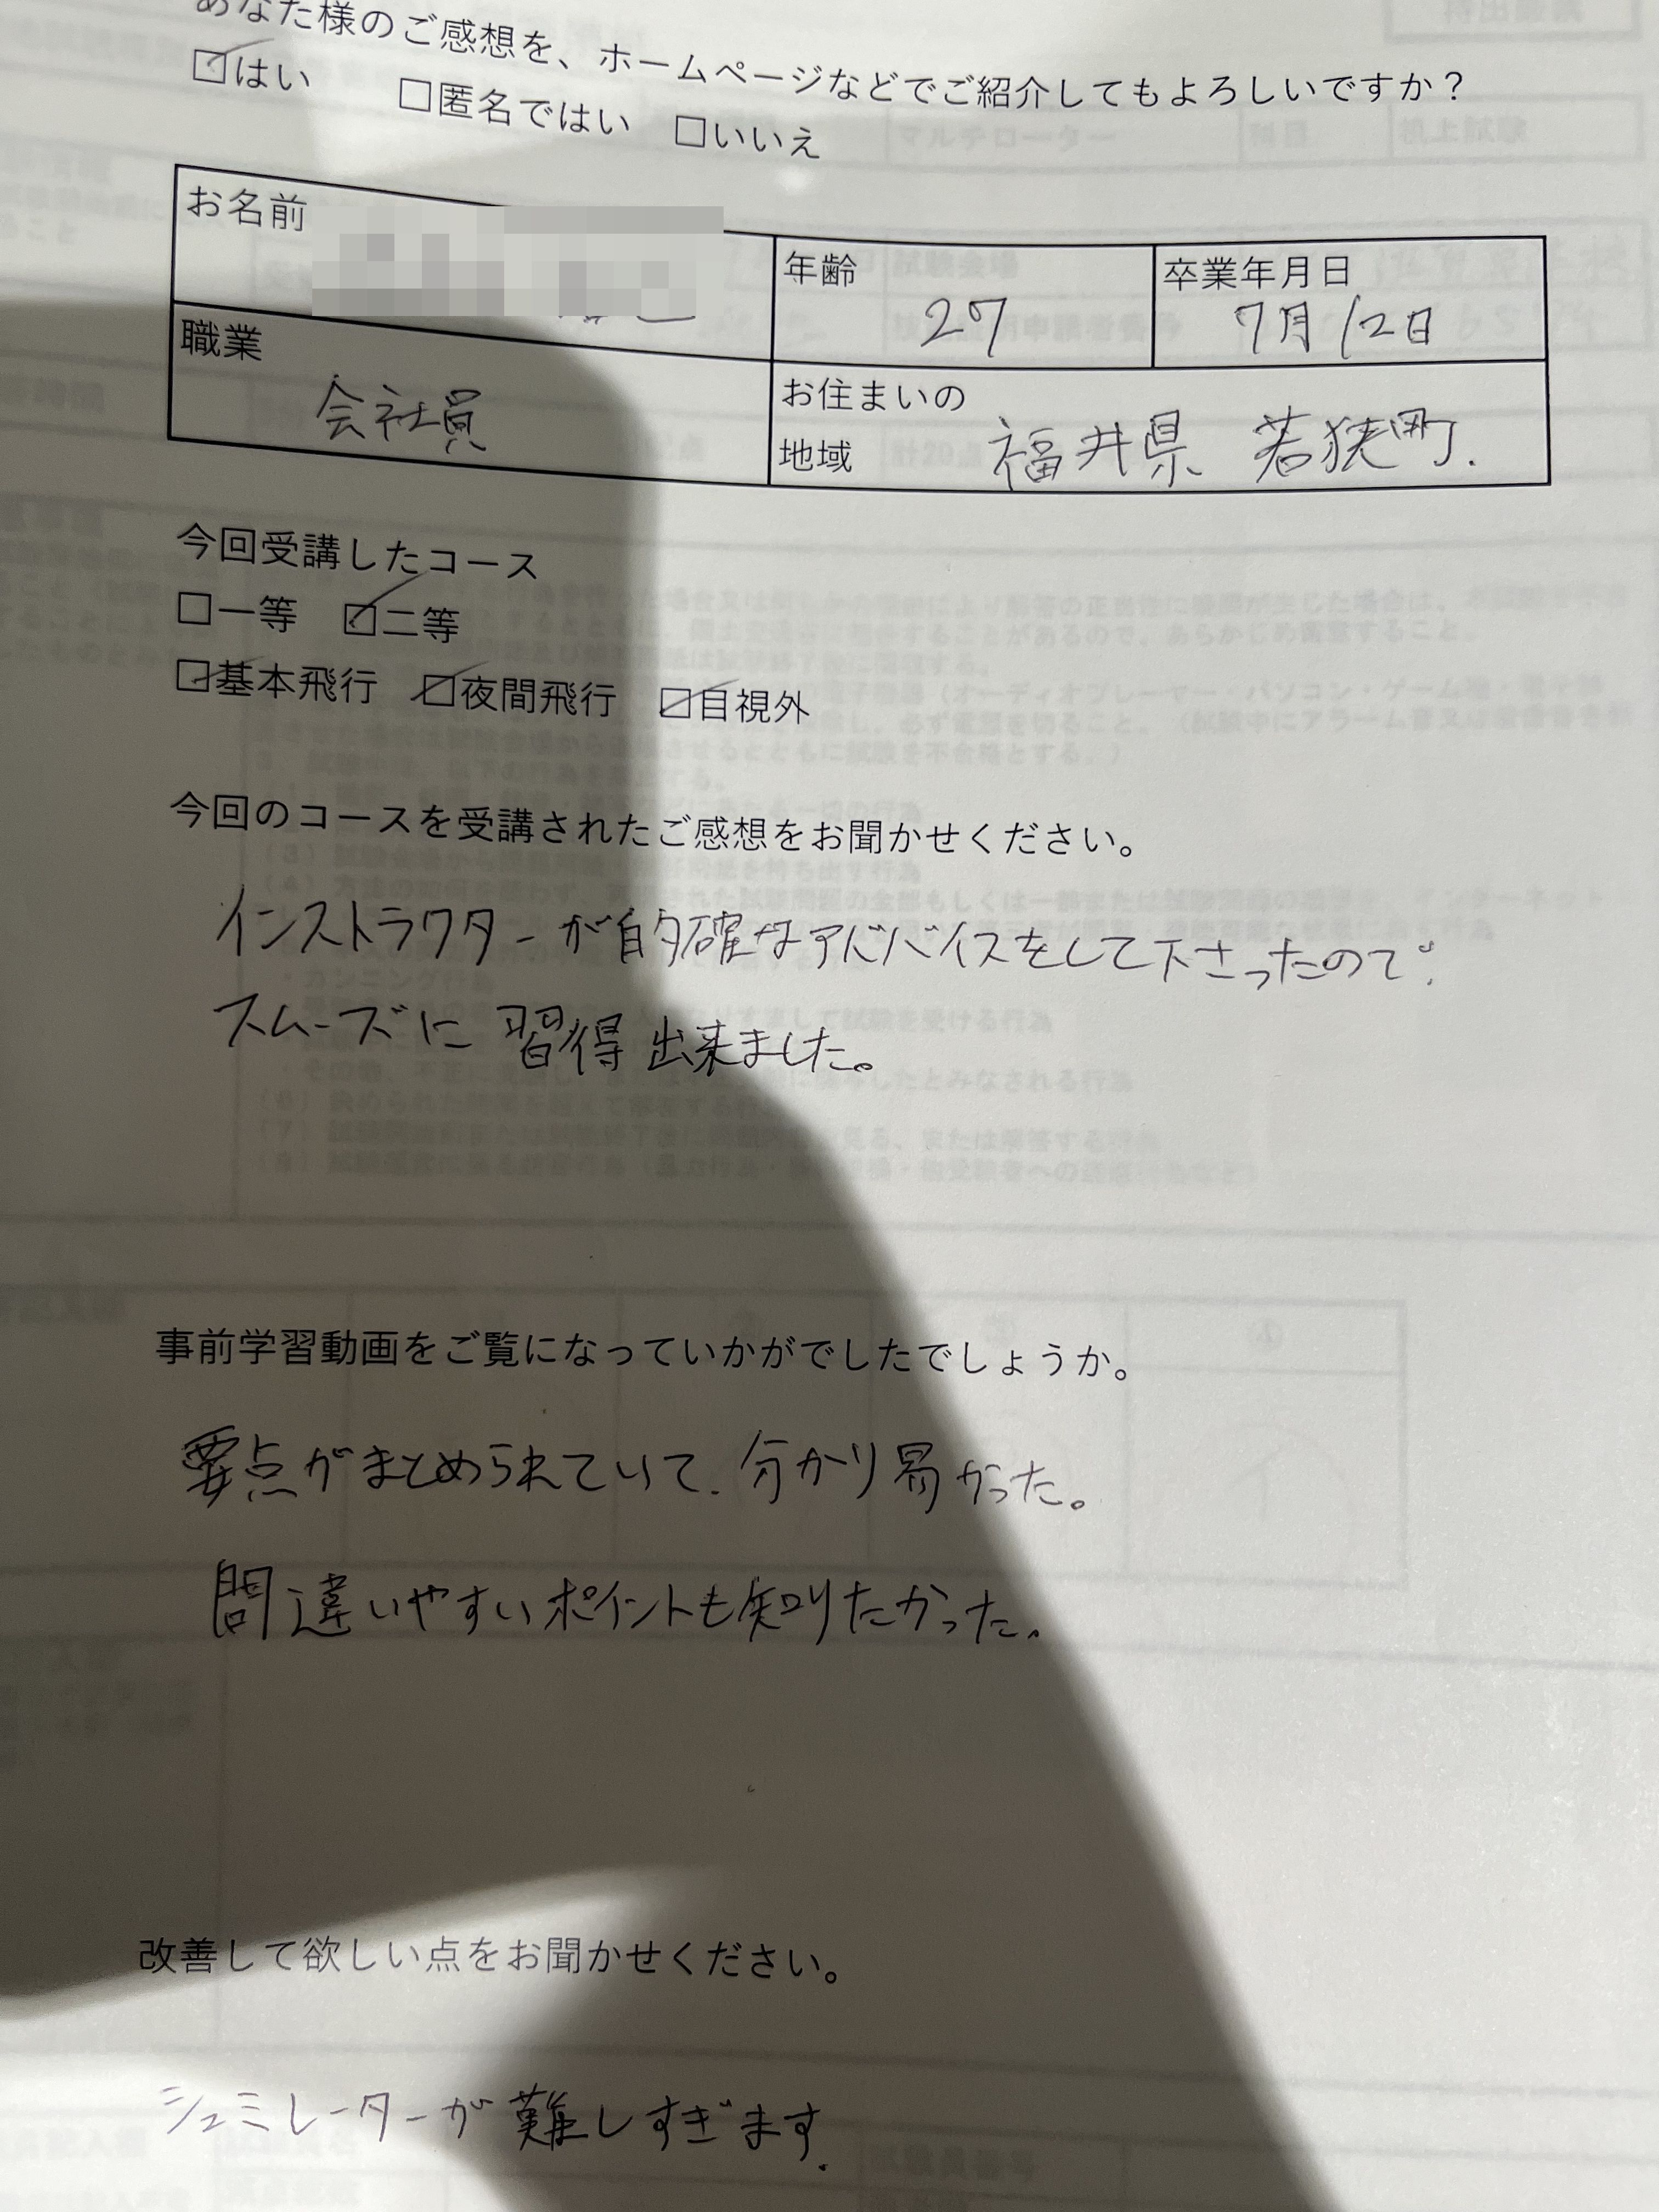 あなた様のご感想を、ホームページなどでご紹介してもよろしいですか？
☑はい □匿名ではい □いいえ
お名前
年齢 27
卒業年月日 7月12日
職業 会社員
お住まいの地域 福井県 若狭町.
今回受講したコース
□一等 ☑二等
☑基本飛行 ☑夜間飛行 ☑目視外
今回のコースを受講されたご感想をお聞かせください。
インストラクターが的確なアドバイスをして下さったので、
スムーズに習得出来ました。
事前学習動画をご覧になっていかがでしたでしょうか。
要点がまとめられていて、分かり易かった。
間違いやすいポイントも知りたかった。
改善して欲しい点をお聞かせください。
シュミレーターが難しすぎます.